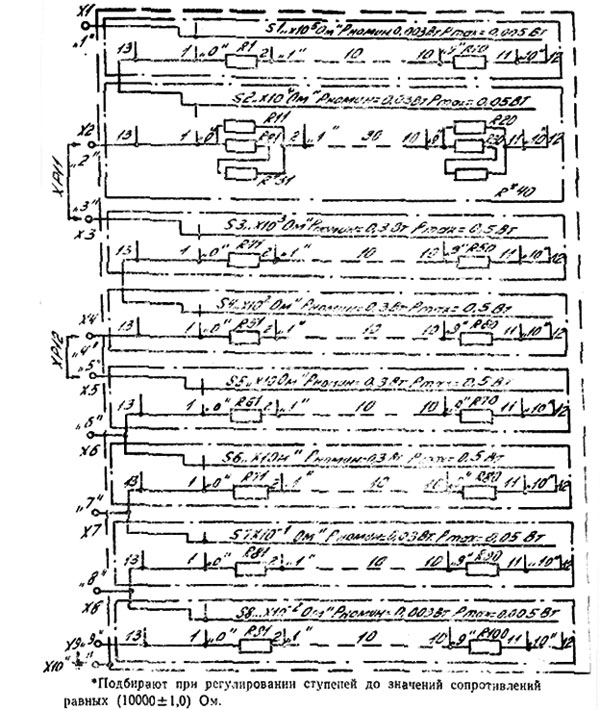 X1
S1 „x10⁵ Ом" Рномин=0,003Вт Рmax=0,005Вт
„1"
13 1 „0" R1 2 „1" 10 10 „9" R10 11 „10" 12
S2 „x10⁴ Ом" Рномин=0,03Вт Рmax=0,05Вт
R11 R20
X2 13 1 „0" 2 „1" 30 10 „9" 11 „10" 12
„2"
R*31 R*40
ХР11
„3"
X3
S3 „x10³ Ом" Рномин=0,3Вт Рmax=0,5Вт
13 1 „0" 2 „1" 10 10 „9" R50 11 „10" 12
S4 „x10² Ом" Рномин=0,3Вт Рmax=0,5Вт
X4 13 1 „0" R51 2 „1" 10 10 „9" R60 11 „10" 12
„4"
ХР12
„5"
X5
S5 „x10 Ом" Рномин=0,3Вт Рmax=0,5Вт
13 1 „0" R61 2 „1" 10 10 R70 11 „10" 12
„6"
X6
S6 „x1 Ом" Рномин=0,3Вт Рmax=0,5Вт
13 1 „0" R71 2 „1" 10 10 R80 11 „10" 12
„7"
X7
S7 x10⁻¹ Ом" Рномин=0,03Вт Рmax=0,05Вт
13 1 „0" R81 2 „1" 10 10 „9" R90 11 „10" 12
„8"
S8 „x10⁻² Ом" Рномин=0,003Вт Рmax=0,005Вт
X9 „9" 13 1 „0" R91 2 „1" 10 10 „9" R100 11 „10" 12
X10
*Подбирают при регулировании ступеней до значений сопротивлений
равных (10000±1,0) Ом.